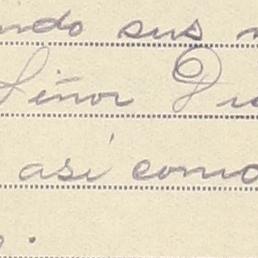 ndo sus
Señor
así como